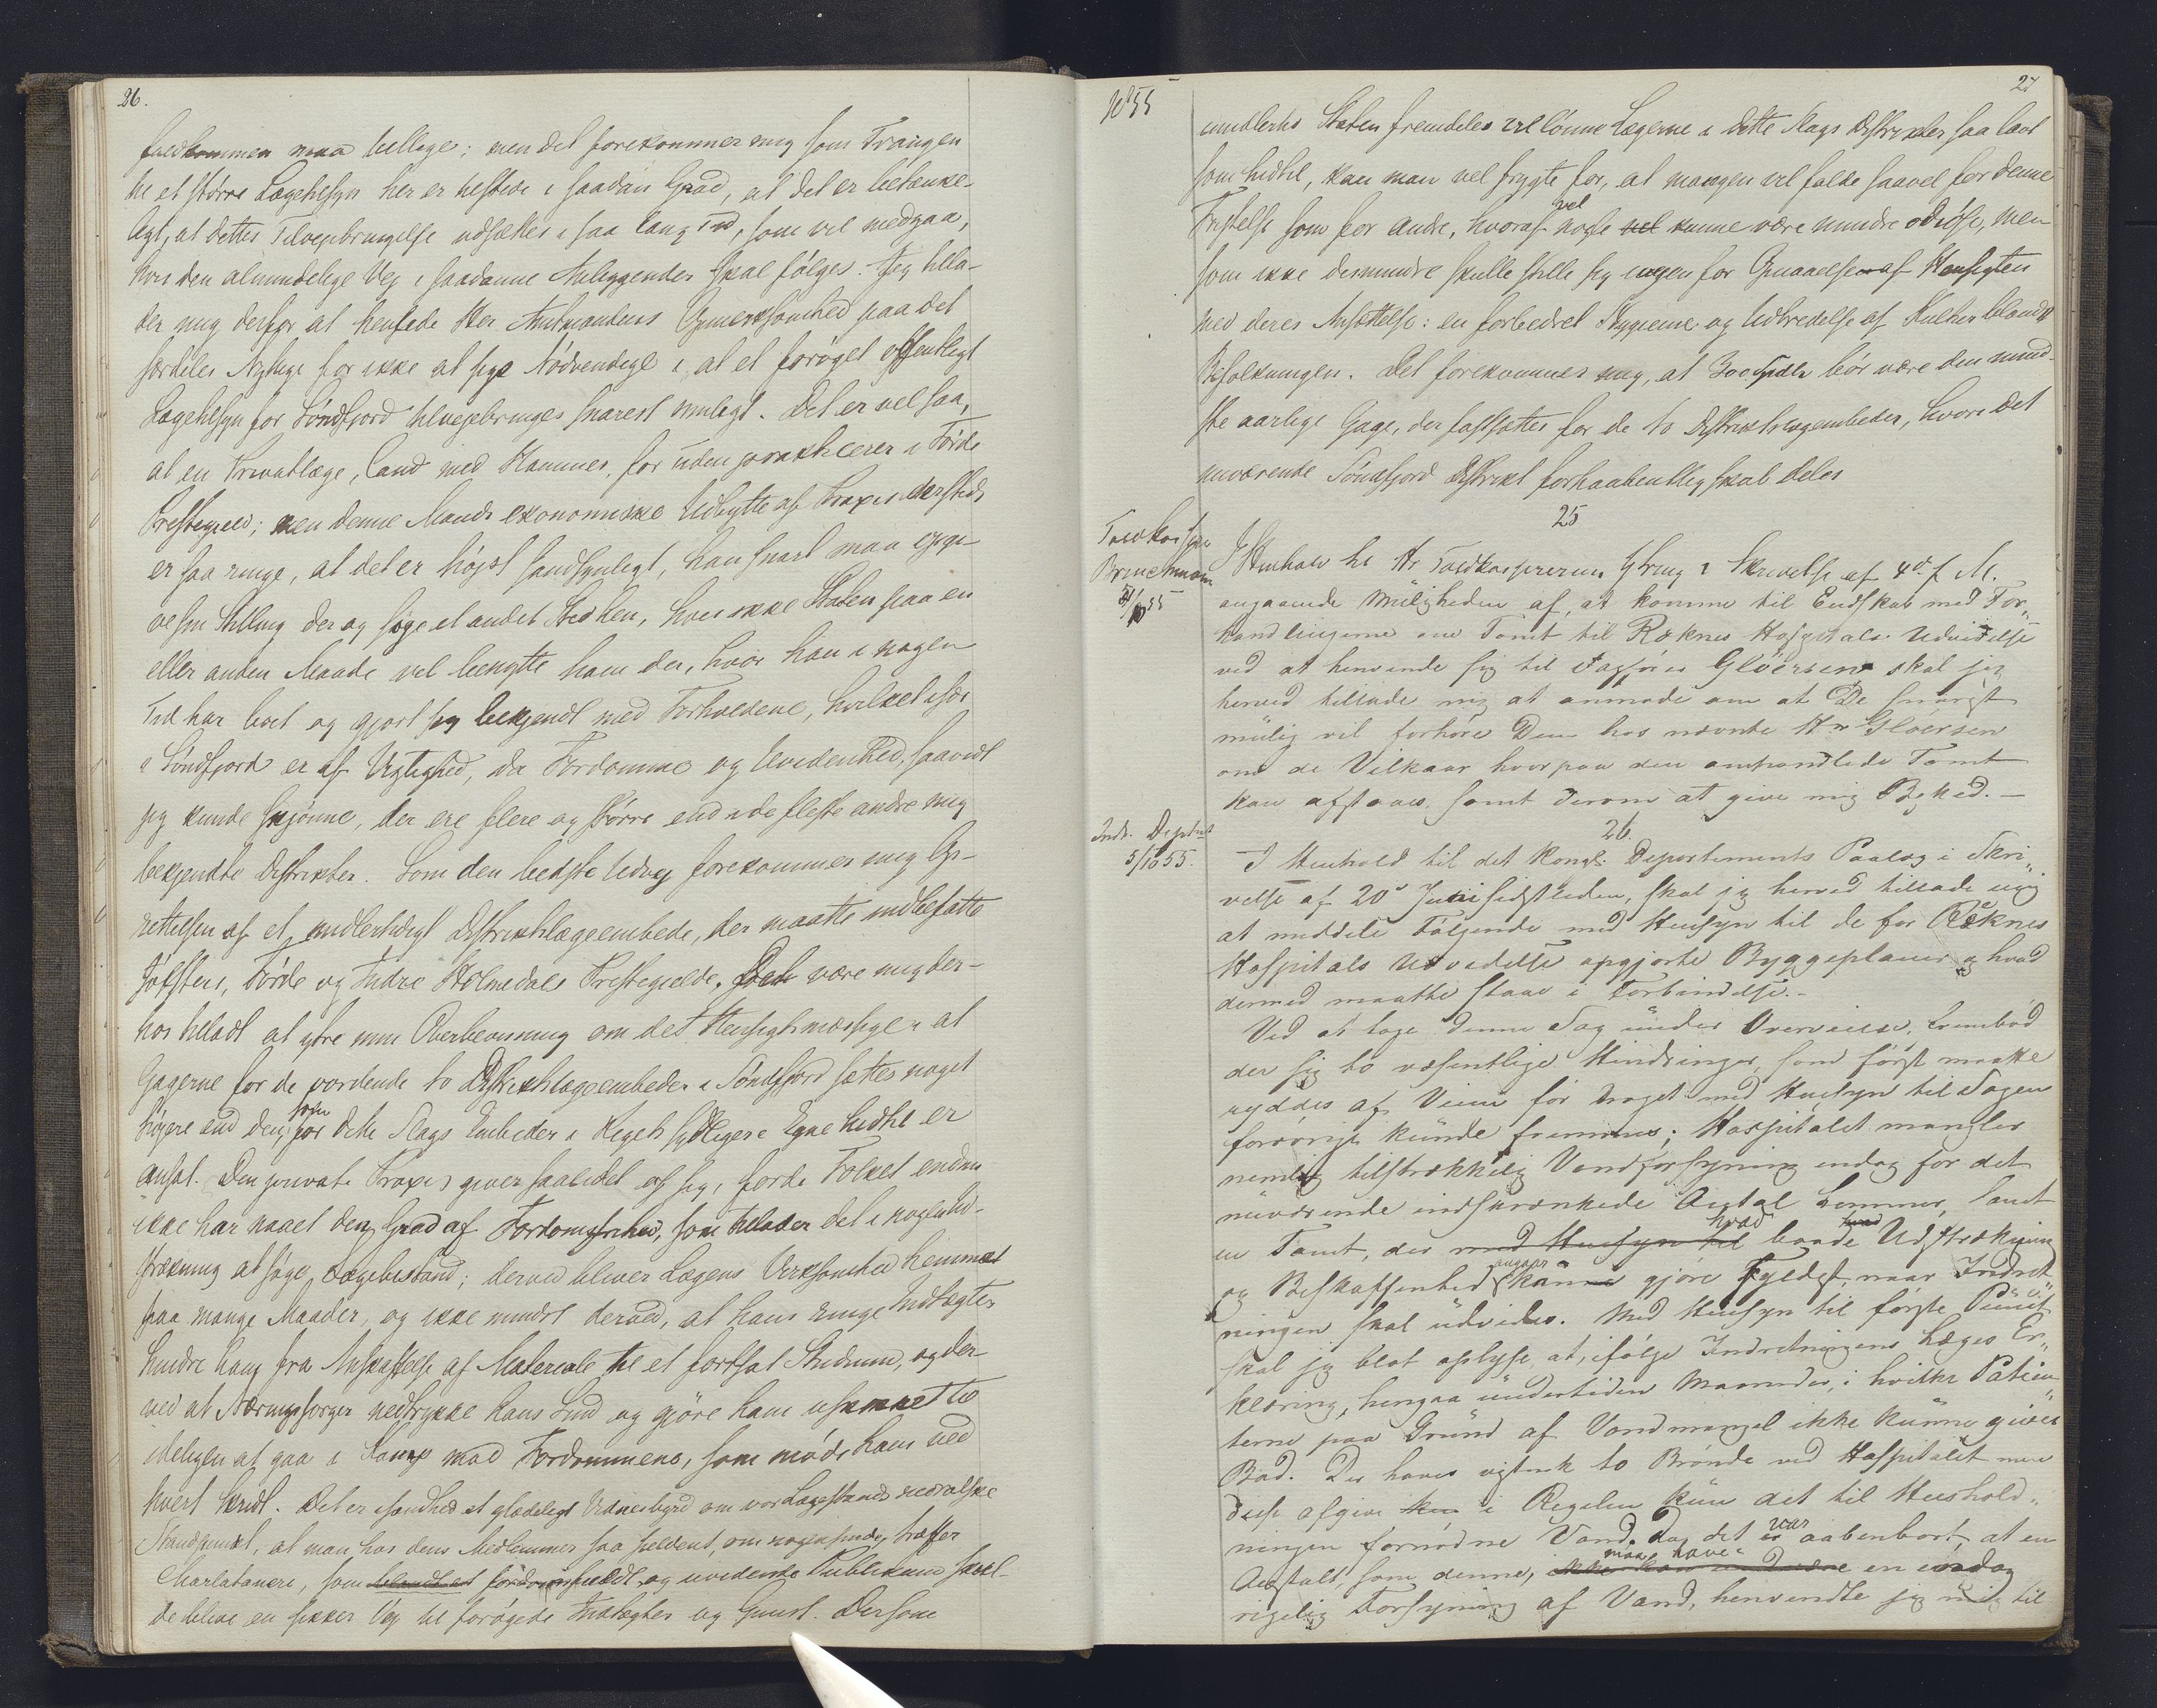 26.
fuldkommen maa billige; men det forekommer mig som Trangen
til et større Lægetilsyn her er tilstede i saadan Grad, at det er betænke-
ligt, at dettes Tilvejebringelse udsættes i saa lang Tid, som vil medgaa,
hvis den almindelige Vej i saadanne Anliggender skal følges. Jeg tilla-
der mig derfor at henlede Her Amtmandens Opmerksomhed paa det
særdeles Nyttige for ikke at sige Nødvendige i, at et forøget offentligt
Lægetilsyn for Søndfjord tilvejebringes snarest muligt. Det er vel saa,
at en Privatlæge, Cand. med Hammer, for tiden praktiserer i Førde
Prestegjeld; men denne Mands ekonomiske Udbytte af Praxis dersteds
er saa ringe, at det er højst sandsynligt, han snart maa opgi-
ve sin Stilling der og søge et andet Sted hen, hvis ikke Staten paa en
eller anden Maade vil benytte ham der, hvor han i nogen
Tid har boet og gjort sig bekjendt med Forholdene, hvilket især
i Søndfjord er af Vigtighed, da Fordomme og Uvidenhed, saavidt
jeg kunde skjønne, der ere flere og større end i de fleste andre mig
bekjendte Distrikter. Som den bedste Udvej forekommer mig Op-
rettelsen af et midlertidigt Distriktslægeembede, der maatte indbefatte
Jølster, Førde og Indre Holmedals Prestegjelde. Det være mig der-
hos tilladt at ytre min Overbevisning om det Hensigtsmæssige i at
Gagerne for de vordende to Distriktslægeembeder i Søndfjord sættes noget
højere end den, som for dette Slags Embeder i Rigets sydligere Egne hidtil er
ansat. Den private Praxis giver saa lidet af sig, fordi Folket endnu
ikke har naaet den Grad af Fordomsfrihed, som tillader det i nogen Ud-
strækning at søge Lægebistand; derved bliver Lægens Virksomhed hemmet
paa mange Maader, og ikke mindst derved, at hans ringe Indtægter
hindre ham fra Anskaffelse af Materiale til et fortsat Studium, og der-
ved at Næringssorger nedtrykke hans Sind og gjøre ham uskikket til
ideligen at gaa i Kamp mod Fordommene, som møde ham ved
hvert Skridt. Det er i Sandhed et glædeligt Vidnesbyrd om vor Lægestands moralske
Standpunkt, at man hos dens Medlemmer saa sieldent, om nogensinde, træffer
Charlataneri, som blandt et fordomsfuldt og uvidende Publikum skul-
de blive en sikker Vej til forøgede Indtægter og Gunst. Dersom
No 55
27
imidlertid Staten fremdeles vil lønne Lægerne i dette Slags Distrikter saa lavt
som hidtil, kan man vel frygte for, at mangen vil falde saavel for denne
Fristelse som for andre, hvoraf nogle vel vel kunne være mindre odiøse, men
som ikke desmindre skulle stille sig i vejen for Opnaaelsen af Hensigten
med deres Ansættelse: en forbedret Hygieine og Udbredelse af Kultur blandt
Befolkningen. Det forekommer mig, at 300 Spdlr bør være den mind-
ste aarlige Gage, der fastsættes for de to Distriktslægembeder, hvori det
nuværende Søndfjord Distrikt forhaabentlig skal deles
25
Toldkasserer
Brinchmann
/10 55
I Henhold til Hr Toldkassererens Ytring i Skrivelse af 4de f. M.
angaaende Muligheden af, at komme til Endskab med For-
handlingerne om Tomt til Reknes Hospitals Udvidelse
ved at henvende sig til Sagfører Gløersen skal jeg
herved tillade mig at anmode om at De snarest
mulig vil forhøre Dem hos nævnte Hr Gløersen
om de Vilkaar hvorpaa den omhandlede Tomt
kan afstaaes, samt derom at give mig Besked. –
26.
Indr. Deptmt
5/10 55.
I Henhold til det kongl. Departements Paalæg i Skri-
velse af 20de Juni sidstleden, skal jeg herved tillade mig
at meddele Følgende med Hensyn til de for Reknes
Hospitals Udvidelse opgjorte Byggeplaner og hvad
dermed maatte staae i Forbindelse. –
Ved at tage denne Sag under Overveielse, frembød
der sig to væsentlige Hindringer, som først maatte
ryddes af Veien før Noget med Hensyn til Sagen
forøvrigt kunde fremmes; Hospitalet mangler
nemlig tilstrækkelig Vandforsyning endog for det
nuværende indskrænkede Antal Lemmer, samt
en Tomt, der med Hensyn til hvad baade Udstrækning
og Beskaffenhed angaar kan gjøre Fyldest, naar Indret-
ningen skal udvides. Med Hensyn til første Punct
skal jeg blot oplyse, at, ifølge Indretningens Læges Er-
klæring, hengaa undertiden Maaneder, i hvilke Patien-
terne paa Grund af Vandmangel ikke kunne gives
Bad. Der haves vistnok to Brønde ved Hospitalet men
disse afgive kun i Regelen kun det til Hushold-
ningen fornødne Vand. Da det er var aabenbart, at en
Anstalt, som denne, maa have en endog
rigelig Forsyning af Vand, henvendte jeg mig til